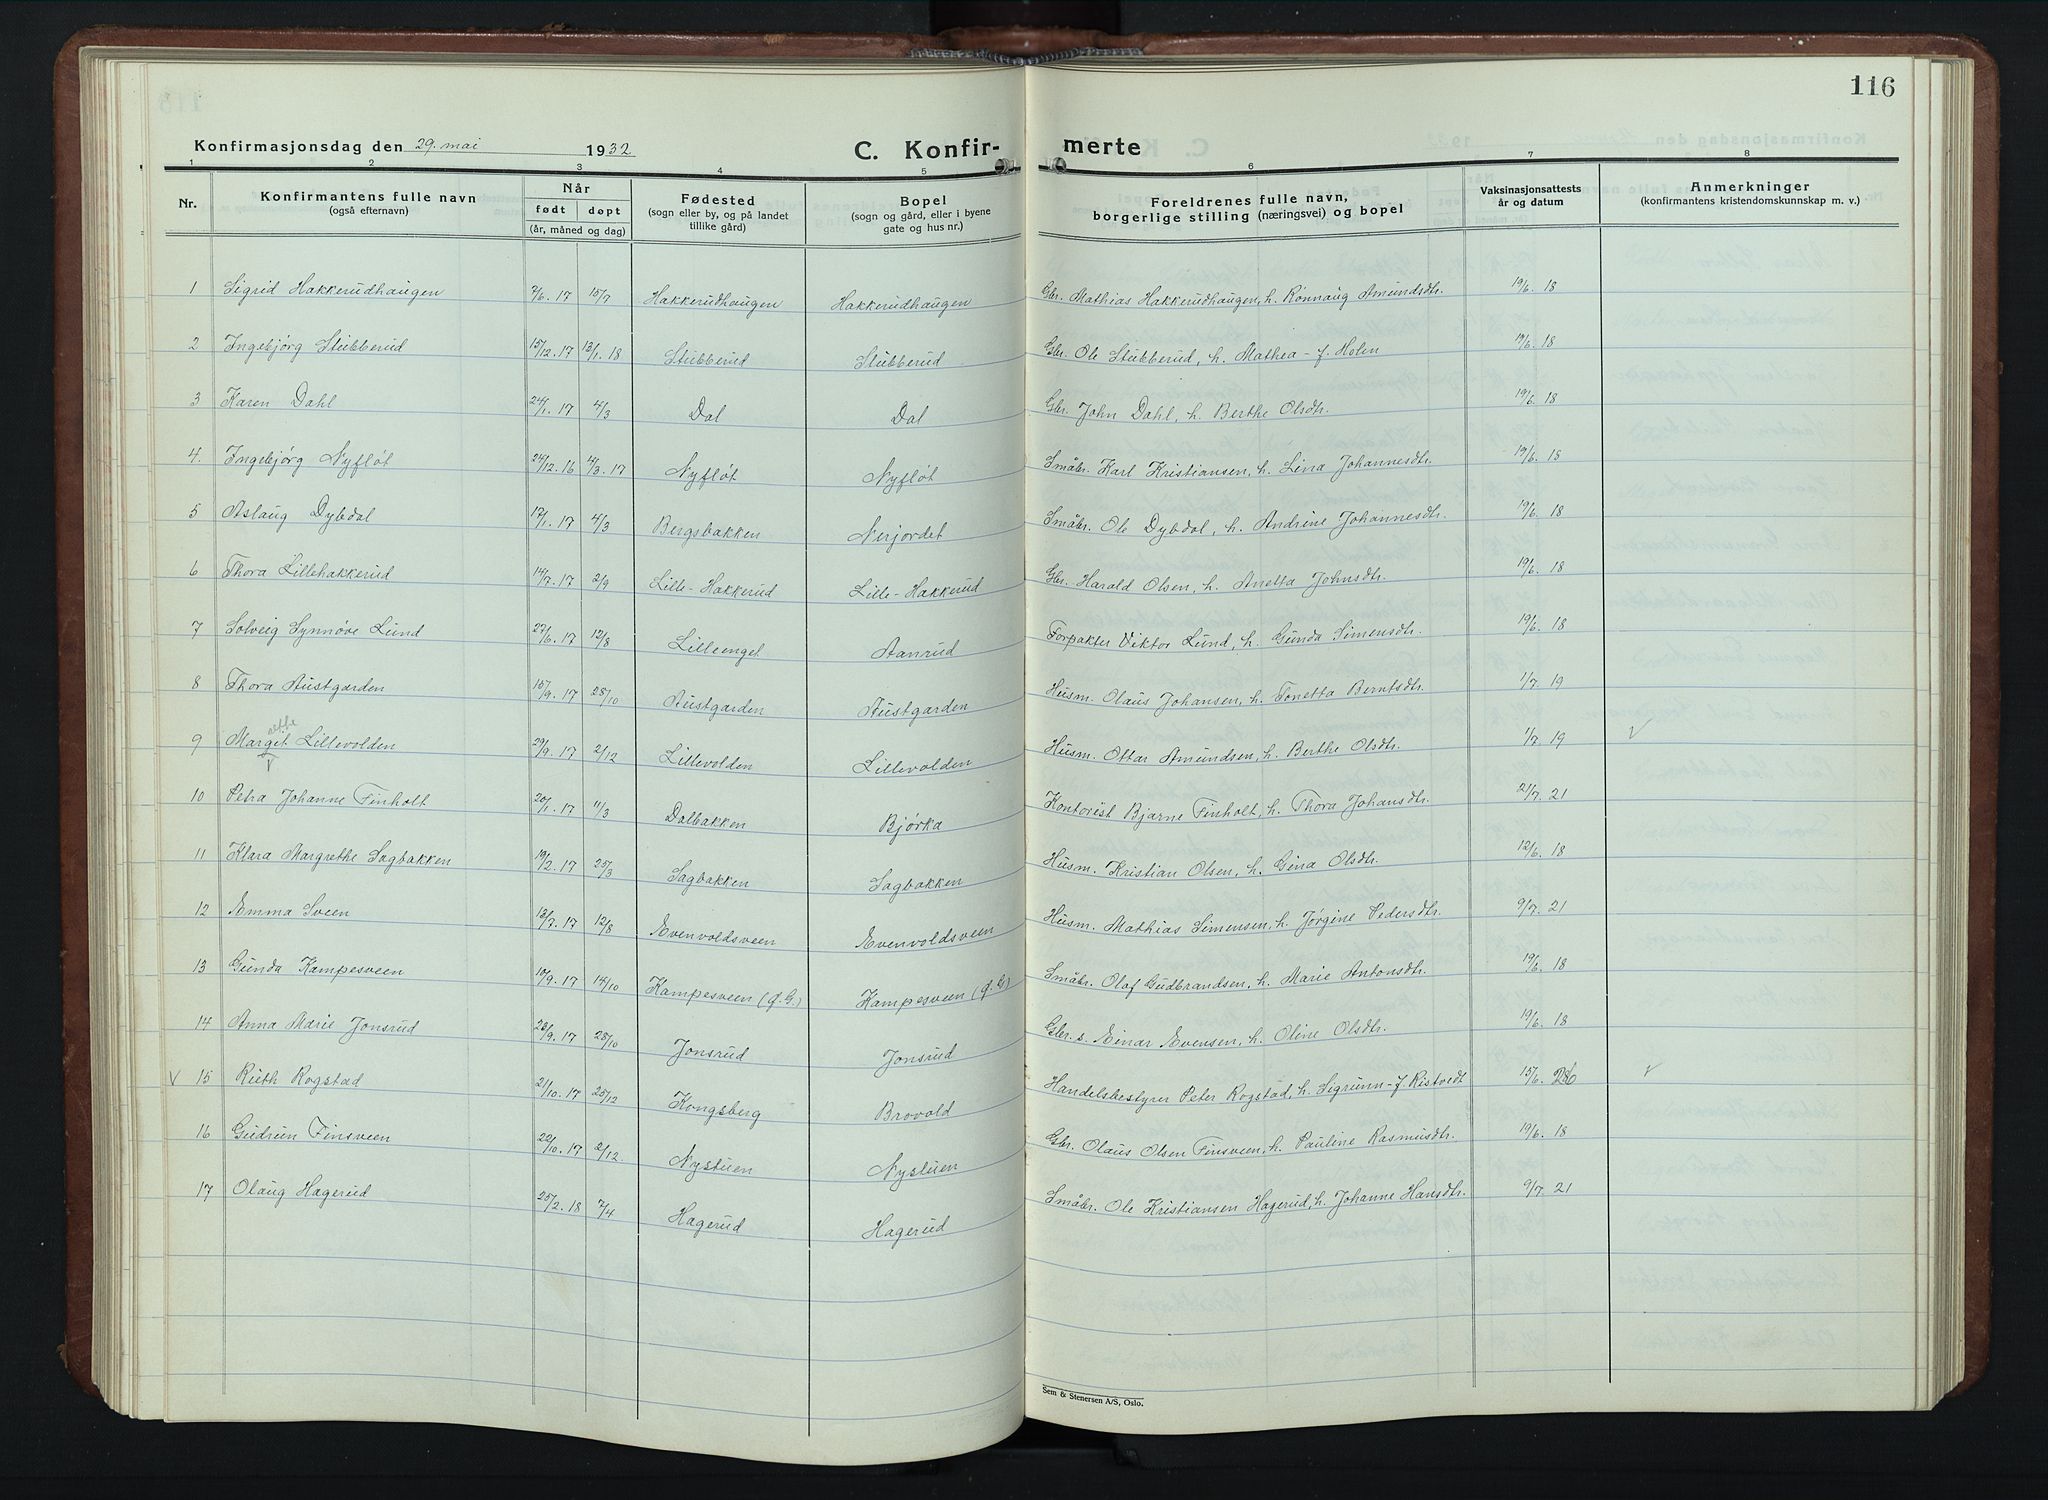 116
Konfirmasjonsdag den 29. mai 1932 C. Konfir- merte
1 2 3 4 5 6 7 8
Nr. Konfirmantens fulle navn (også efternavn) Når født døpt (år, måned og dag) Fødested (sogn eller by, og på landet tillike gård) Bopel (sogn og gård, eller i byene gate og hus nr.) Foreldrenes fulle navn, borgerlige stilling (næringsvei) og bopel Vaksinasjonsattests år og datum Anmerkninger (konfirmantens kristendomskunnskap m. v.)
1 Sigrid Hakkerudhaugen 7/6. 17 15/7 Hakkerudhaugen Hakkerudhaugen Gbr. Mathias Hakkerudhaugen, h. Rønnaug Amundsdtr. 19/6. 18
2 Ingebjørg Stubberud 15/12. 17 13/1. 18 Stubberud Stubberud Gbr. Ole Stubberud, h. Mathea - f. Holen 19/6. 18
3 Karen Dahl 24/1. 17 4/3 Dal Dal Gbr. John Dahl, h. Berthe Olsdtr. 19/6. 18
4. Ingebjørg Nyfløt 24/12. 16 4/3. 17 Nyfløt Nyfløt Småbr. Karl Kristiansen, h. Lina Johannesdtr. 19/6. 18
5 Aslaug Dybdal 17/1. 17 4/3 Bergsbakken Nerjordet Småbr. Ole Dybdal, h. Andrine Johannesdtr. 19/6. 18
6 Thora Lillehakkerud 14/7. 17 2/9 Lille-Hakkerud Lille-Hakkerud Gbr. Harald Olsen, h. Anetta Johnsdtr. 19/6. 18
7 Solveig Synnøve Lund 27/6. 17 12/8 Lilleenget Aanrud Forpakter Viktor Lund, h. Gunda Simensdtr. 19/6. 18
8 Thora Austgarden 15/9. 17 28/10 Austgarden Austgarden Husm. Olaus Johansen, h. Tonetta Berntsdtr. 1/7. 19
9 Margit Lillevolden 29/9. 17 2/12 Lillevolden Lillevolden Husm. Ottar Amundsen, h. Berthe Olsdtr. 1/7. 19 V
10 Petra Johanne Finholt 20/1. 17 11/3 Dalbakken Bjørka Kontorist Bjarne Finholt, h. Thora Johansdtr. 21/7. 21
11 Klara Margrethe Sagbakken 19/2. 17 25/3 Sagbakken Sagbakken Husm. Kristian Olsen, h. Gina Olsdtr. 12/6. 18
12 Emma Sveen 13/7. 17 12/8 Evenvoldsveen Evenvoldsveen Husm. Mathias Simensen, h. Jørgine Pedersdtr. 9/7. 21
13 Gunda Kampesveen 10/9. 17 14/10 Kampesveen (Ø. G.) Kampesveen (Ø. G) Småbr. Olaf Gudbrandsen, h. Marie Antonsdtr. 19/6. 18
14 Anna Marie Jonsrud 23/9. 17 28/10 Jonsrud Jonsrud Gbr. s. Einar Evensen, h. Oline Olsdtr. 19/6. 18
V 15 Ruth Rogstad 21/10. 17 25/12 Kongsberg Brovold Handelsbestyrer Peter Rogstad, h. Sigrunn - f. Ristvedt 15/6. V
16 Gudrun Finsveen 22/10. 17 2/12. Nystuen Nystuen Gbr. Olaus Olsen Finsveen, h. Pauline Rasmusdtr. 19/6. 18
17 Olaug Hagerud 25/2. 18 7/4 Hagerud Hagerud Småbr. Ole Kristiansen Hagerud, h. Johanne Hansdtr. 9/7. 21
Sem & Stenersen A/S, Oslo.